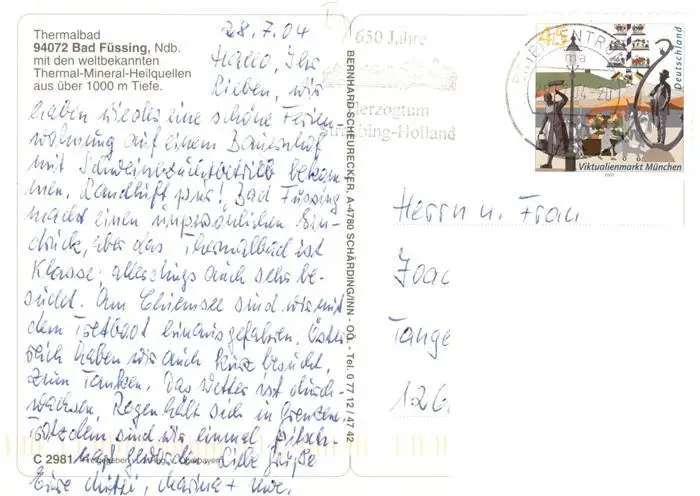 Thermalbad
94072 Bad Füssing, Ndb.
mit den weltbekannten
Thermal-Mineral-Heilquellen
aus über 1000 m Tiefe.
28.7.04
Hallo, Ihr
Lieben, wir
haben wieder eine schöne Ferien-
wohnung auf einem Bauernhof
mit Schweinezuchtbetrieb bekom-
men. Landluft pur! Bad Füssing
macht einen unpersönlichen Ein-
druck, aber das Thermalbad ist
Klasse; allerdings auch sehr be-
sucht. Am Chiemsee sind wir mit
dem Tretboot hinausgefahren. Öster-
reich haben wir auch kurz besucht,
zum Tanken. Das Wetter ist durch-
wachsen, Regen hält sich in Grenzen.
Trotzdem sind wir einmal pitsch-
naß geworden. Liebe Grüße
Eure
Marina + Uwe.
C 2981
BERNHARD SCHEURECKER, A-4780 SCHÄRDING/INN - OÖ. - Tel. 0 77 12 / 47 42
650 Jahre
Herzogtum
Straubing-Holland
BRIEFZENTRUM
Deutschland
Viktualienmarkt München
Herrn u. Frau
Joac
Tange
126